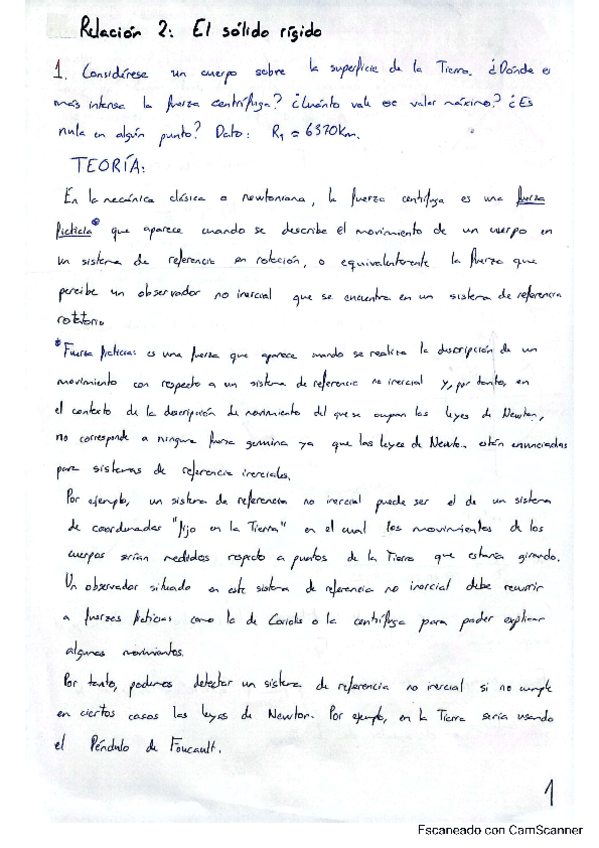 Relación 2: El sólido rígido
1. Considérese un cuerpo sobre la superficie de la Tierra. ¿Dónde e
más intensa la fuerza centrífuga? ¿Cuánto vale ese valor máximo? ¿Es
nula en algún punto? Dato: R₁ = 6370Km.
TEORÍA:
En la mecánica clásica o newtoniana, la fuerza centrífuga es una fuerza
ficticia* que aparece cuando se describe el movimiento de un cuerpo en
un sistema de referencia en rotación, o equivalentemente la fuerza que
percibe un observador no inercial que se encuentra en un sistema de referencia
rotatorio
*Fuerza ficticia: es una fuerza que aparece cuando se realiza la descripción de un
movimiento con respecto a un sistema de referencia no inercial y, por tanto, en
el contexto de la descripción de movimiento del que se ocupan las leyes de Newton,
no corresponde a ninguna fuerza genuina ya que las leyes de Newto.. están enunciadas
para sistemas de referencia inerciales.
Por ejemplo, un sistema de referencia no inercial puede ser el de un sistema
de coordenadas "fijo en la Tierra" en el cual los movimientos de los
cuerpos serían medidos respecto a puntos de la Tierra que estaría girando.
Un observador situado en este sistema de referencia no inercial debe recurrir
a fuerzas ficticias como la de Coriolis o la centrífuga para poder explicar
algunos movimientos.
Por tanto, podemos detectar un sistema de referencia no inercial si no cumple
en ciertos casos las leyes de Newton. Por ejemplo, en la Tierra sería usando
el Péndulo de Foucault.
1
Escaneado con CamScanner